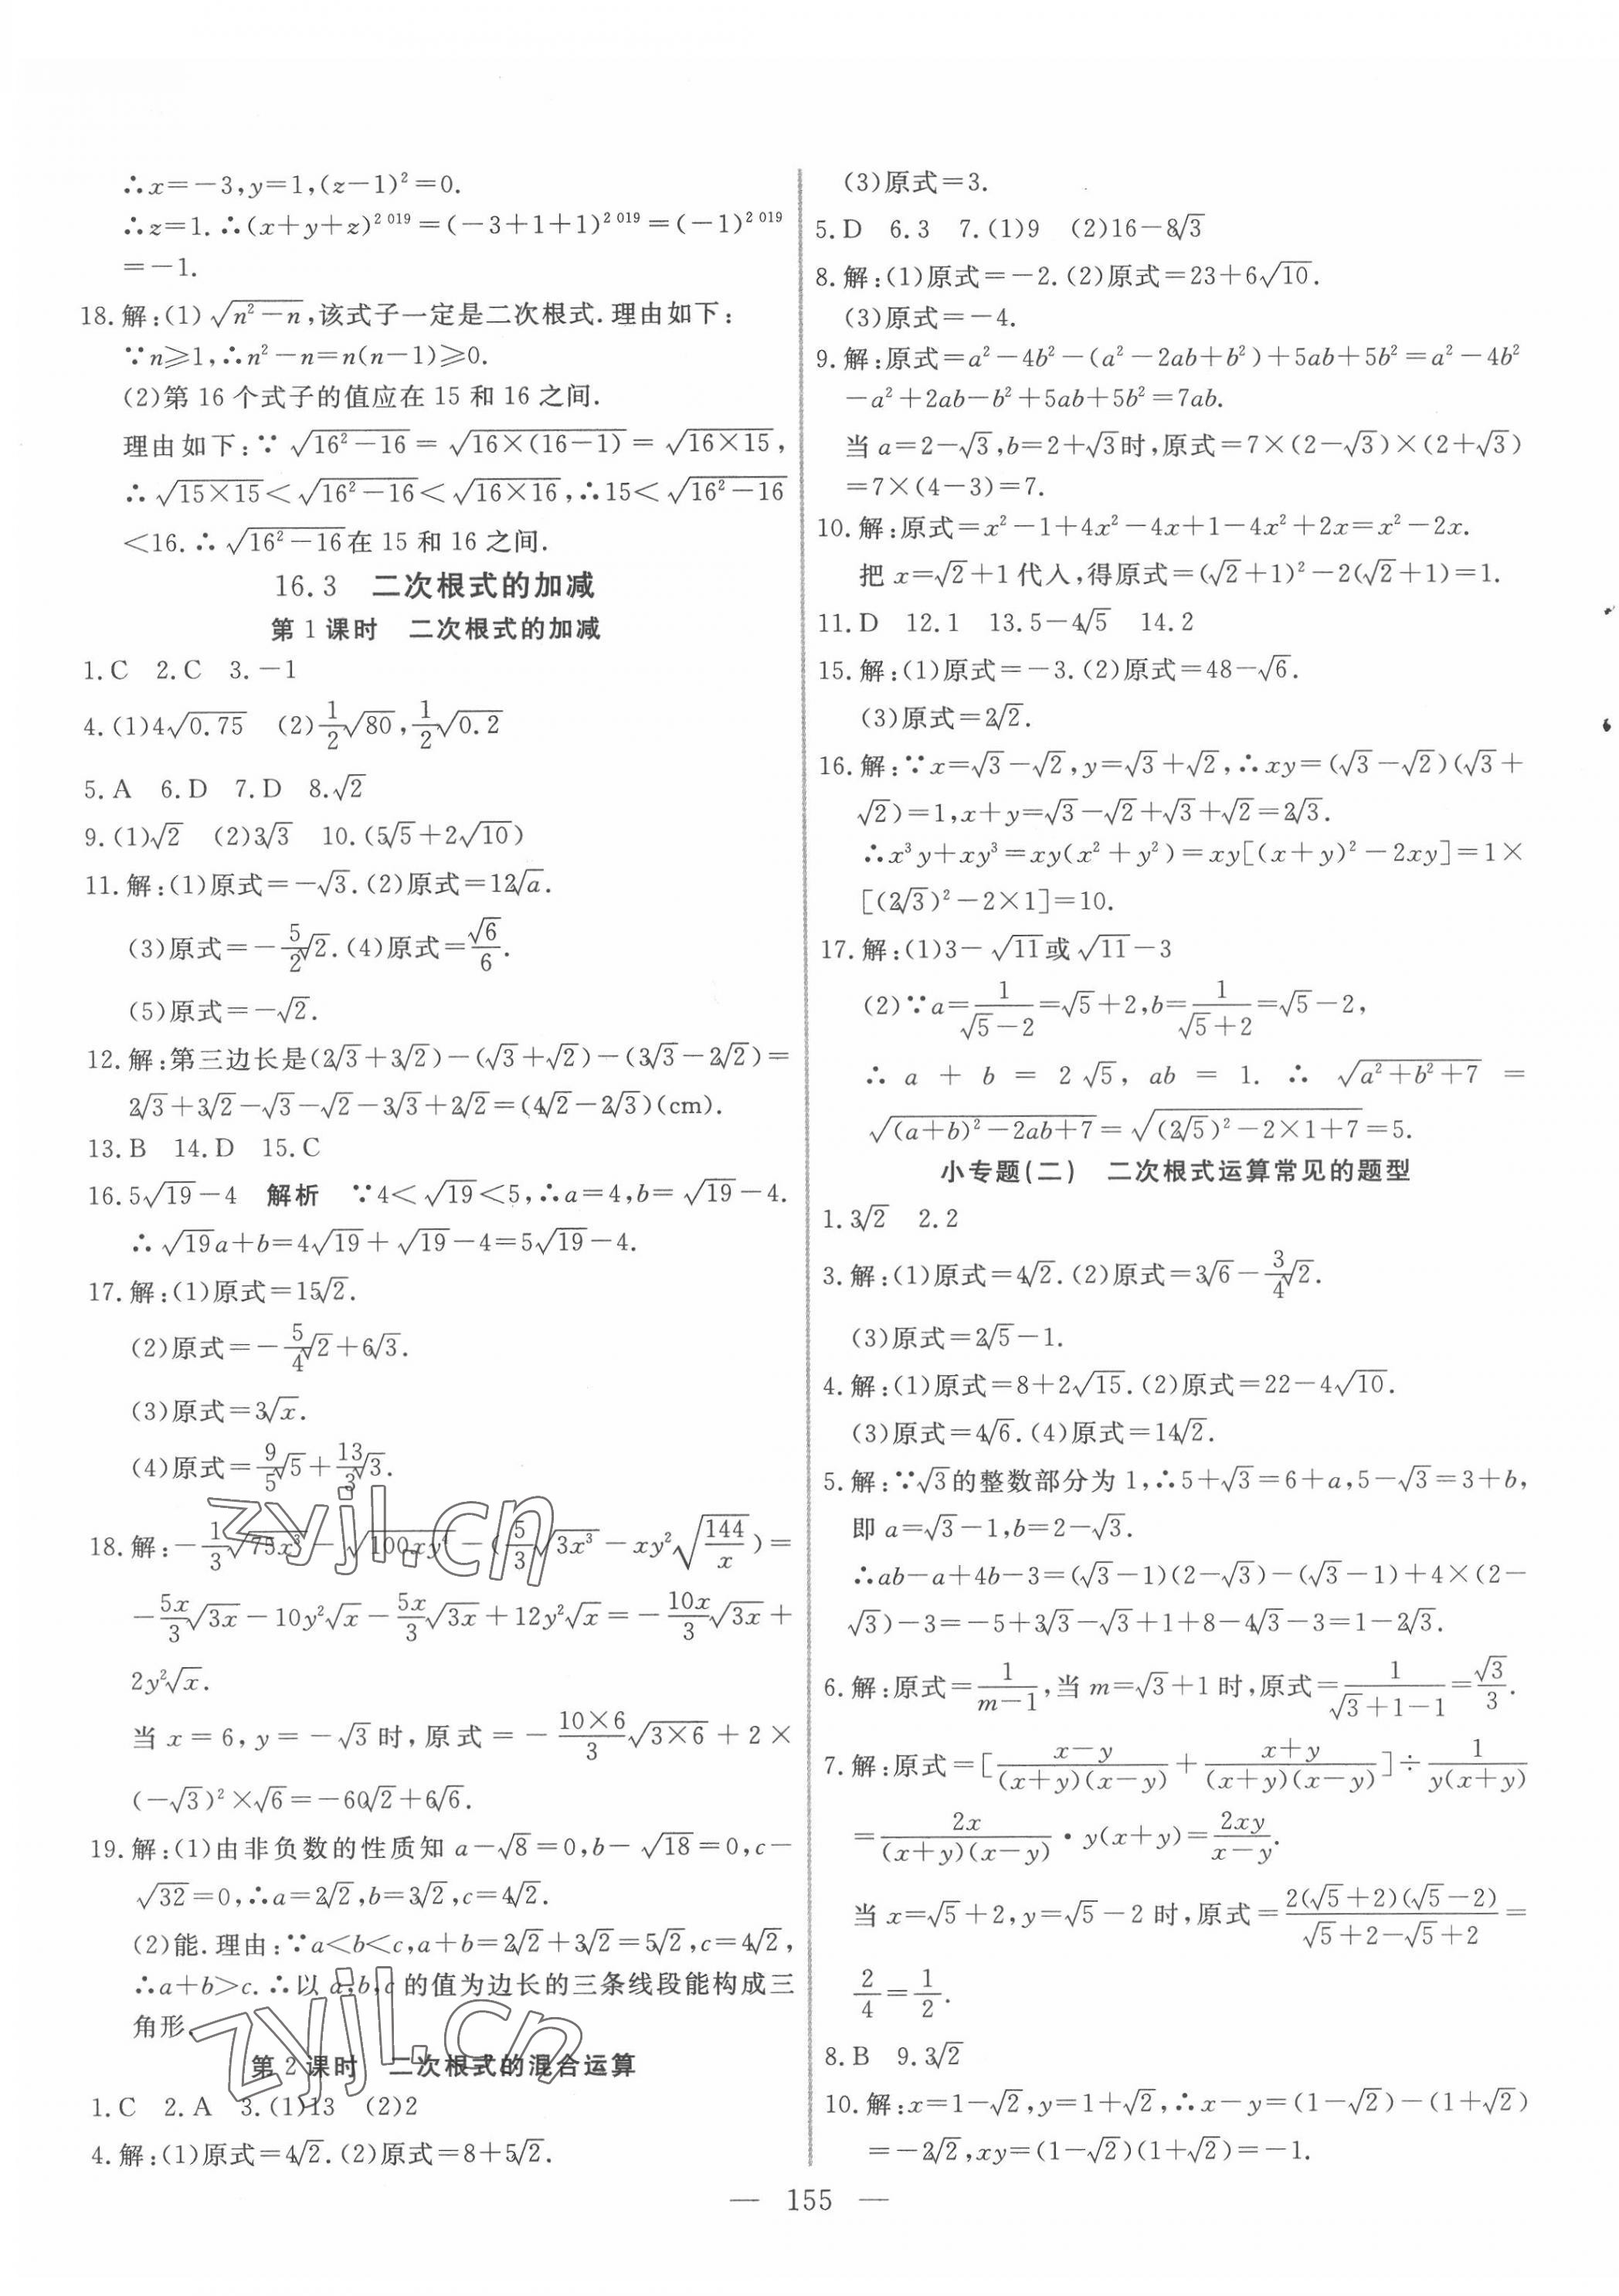 ∴x=−3,y=1,(z−1)²=0.
∴z=1.∴(x+y+z)²⁰¹⁹=(−3+1+1)²⁰¹⁹=(−1)²⁰¹⁹
=−1.
18.解:(1)√(n²−n),该式子一定是二次根式.理由如下:
∵n≥1,∴n²−n=n(n−1)≥0.
(2)第 16 个式子的值应在 15 和 16 之间.
理由如下:∵√(16²−16)=√(16×(16−1))=√(16×15),
∴√(15×15)<√(16²−16)<√(16×16),∴15<√(16²−16)
<16.∴√(16²−16)在 15 和 16 之间.
16.3 二次根式的加减
第 1 课时 二次根式的加减
1.C 2.C 3.−1
4.(1)4√0.75 (2)1/2√80,1/2√0.2
5.A 6.D 7.D 8.√2
9.(1)√2 (2)3√3 10.(5√5+2√10)
11.解:(1)原式=−√3.(2)原式=12√a.
(3)原式=−5/2√2.(4)原式=√6/6.
(5)原式=−√2.
12.解:第三边长是(2√3+3√2)−(√3+√2)−(3√3−2√2)=
2√3+3√2−√3−√2−3√3+2√2=(4√2−2√3)(cm).
13.B 14.D 15.C
16.5√19−4 解析 ∵4<√19<5,∴a=4,b=√19−4.
∴√19a+b=4√19+√19−4=5√19−4.
17.解:(1)原式=15√2.
(2)原式=−5/4√2+6√3.
(3)原式=3√x.
(4)原式=9/5√5+13/3√3.
18.解:−1/3√(75x³)−√(100xy⁴)−(5/3√(3x³)−xy²√(144/x))=
−5x/3√(3x)−10y²√x−5x/3√(3x)+12y²√x=−10x/3√(3x)+
2y²√x.
当 x=6,y=−√3时,原式=−(10×6)/3√(3×6)+2×
(−√3)²×√6=−60√2+6√6.
19.解:(1)由非负数的性质知 a−√8=0,b−√18=0,c−
√32=0,∴a=2√2,b=3√2,c=4√2.
(2)能.理由:∵a<b<c,a+b=2√2+3√2=5√2,c=4√2,
∴a+b>c.∴以 a,b,c 的值为边长的三条线段能构成三
角形.
第 2 课时 二次根式的混合运算
1.C 2.A 3.(1)13 (2)2
4.解:(1)原式=4√2.(2)原式=8+5√2.
(3)原式=3.
5.D 6.3 7.(1)9 (2)16−8√3
8.解:(1)原式=−2.(2)原式=23+6√10.
(3)原式=−4.
9.解:原式=a²−4b²−(a²−2ab+b²)+5ab+5b²=a²−4b²
−a²+2ab−b²+5ab+5b²=7ab.
当 a=2−√3,b=2+√3时,原式=7×(2−√3)×(2+√3)
=7×(4−3)=7.
10.解:原式=x²−1+4x²−4x+1−4x²+2x=x²−2x.
把 x=√2+1代入,得原式=(√2+1)²−2(√2+1)=1.
11.D 12.1 13.5−4√5 14.2
15.解:(1)原式=−3.(2)原式=48−√6.
(3)原式=2√2.
16.解:∵x=√3−√2,y=√3+√2,∴xy=(√3−√2)(√3+
√2)=1,x+y=√3−√2+√3+√2=2√3.
∴x³y+xy³=xy(x²+y²)=xy[(x+y)²−2xy]=1×
[(2√3)²−2×1]=10.
17.解:(1)3−√11或√11−3
(2)∵a=1/(√5−2)=√5+2,b=1/(√5+2)=√5−2,
∴a+b=2√5,ab=1.∴√(a²+b²+7)=
√((a+b)²−2ab+7)=√((2√5)²−2×1+7)=5.
小专题(二) 二次根式运算常见的题型
1.3√2 2.2
3.解:(1)原式=4√2.(2)原式=3√6−3/4√2.
(3)原式=2√5−1.
4.解:(1)原式=8+2√15.(2)原式=22−4√10.
(3)原式=4√6.(4)原式=14√2.
5.解:∵√3的整数部分为 1,∴5+√3=6+a,5−√3=3+b,
即 a=√3−1,b=2−√3.
∴ab−a+4b−3=(√3−1)(2−√3)−(√3−1)+4×(2−
√3)−3=−5+3√3−√3+1+8−4√3−3=1−2√3.
6.解:原式=1/(m−1),当 m=√3+1时,原式=1/(√3+1−1)=√3/3.
7.解:原式=[(x−y)/((x+y)(x−y))+(x+y)/((x+y)(x−y))]÷1/(y(x+y))
=2x/((x+y)(x−y))·y(x+y)=2xy/(x−y).
当 x=√5+2,y=√5−2时,原式=2(√5+2)(√5−2)/(√5+2−√5+2)=
2/4=1/2.
8.B 9.3√2
10.解:x=1−√2,y=1+√2,∴x−y=(1−√2)−(1+√2)
=−2√2,xy=(1−√2)(1+√2)=−1.
— 155 —
zyjl.cn
zyjl.cn